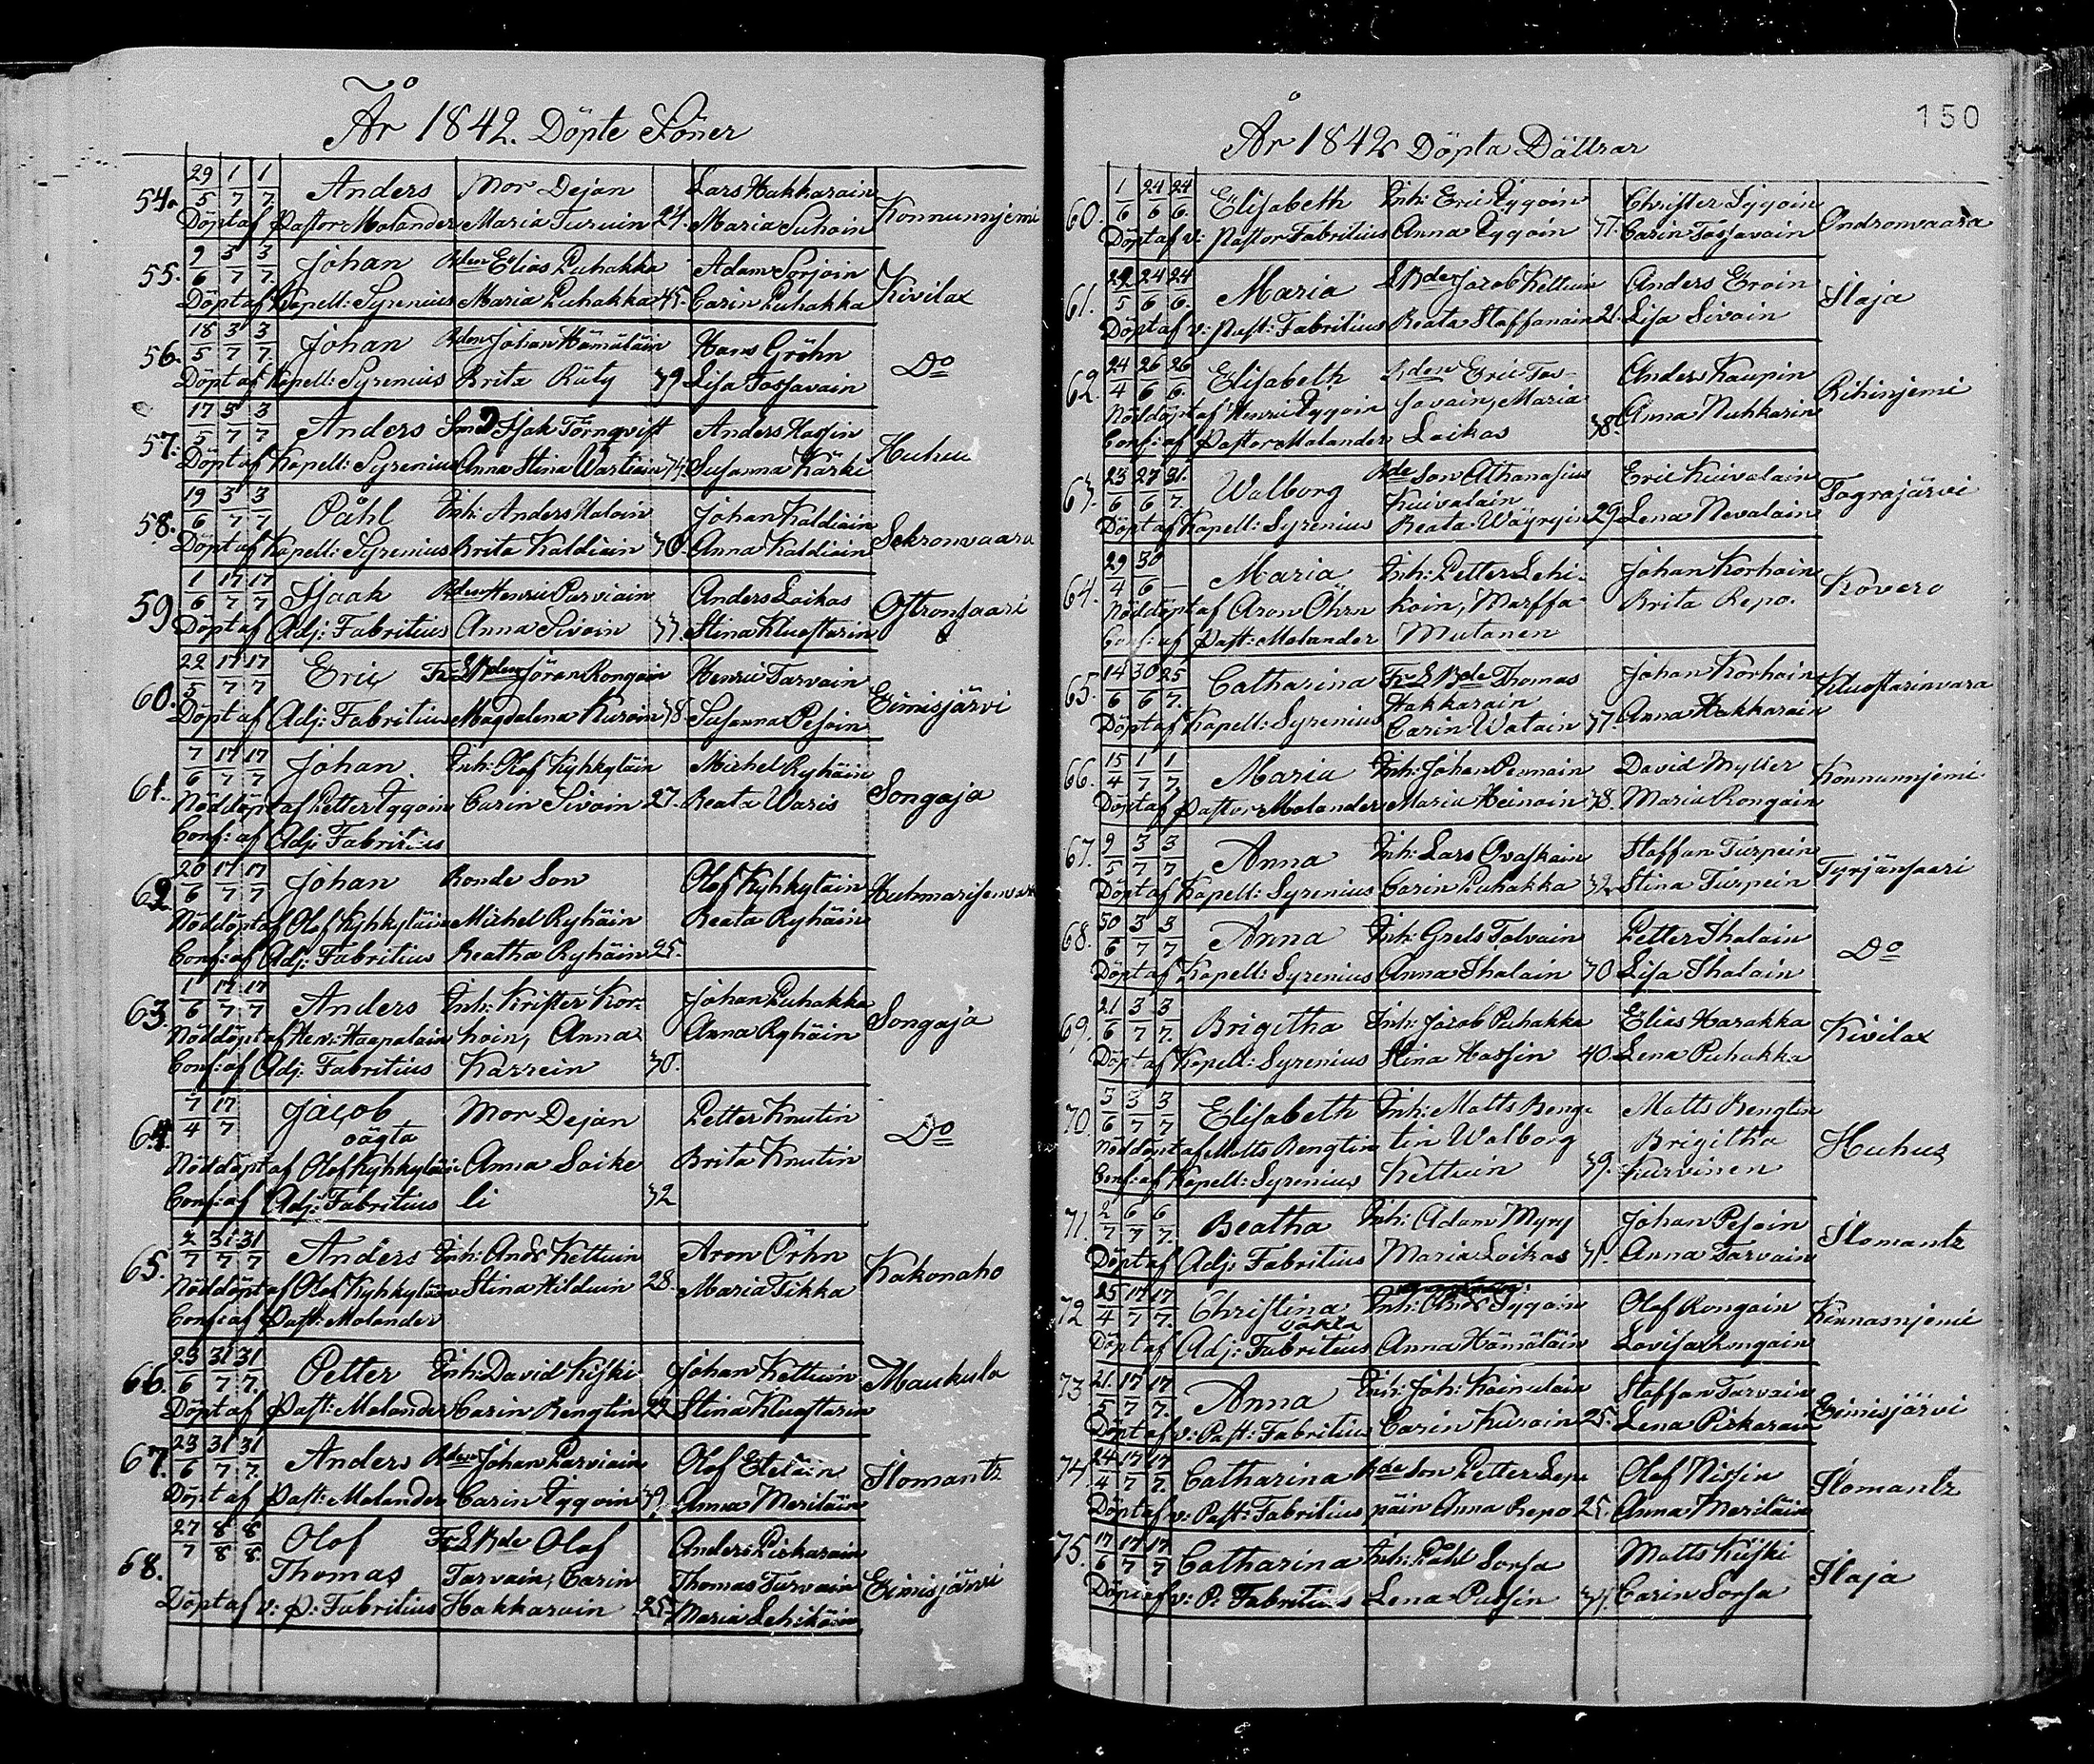 År 1842. Döpte Söner
54. 29/5 1/7 1/7 Anders Mor Dejan Lars Hakkarain Konnunnjemi
Döpt af Pastor Molander Maria Turuin 24. Maria Suhoin
55. 9/6 3/7 3/7 Johan Bden Elias Puhakka Adam Sorjoin Kivilax
Döpt af Kapell: Syrenius Maria Puhakka 45. Carin Puhakka
56. 18/5 3/7 3/7 Johan Bden Johan Hämäläin Hans Gröhn Do
Döpt af Kapell: Syrenius Brita Räty 39 Lisa Tossavain
57. 17/5 3/7 3/7 Anders Isak Törnqvist Anders Hassin Huhus
Döpt af Kapell: Syrenius Anna Stina Wartiain 34. Susanna Kärki
58. 19/6 3/7 3/7 Påhl Inh: Anders Haloin Johan Kaldiain Sekronvaara
Döpt af Kapell: Syrenius Brita Kaldiain 30. Anna Kaldiain
59 1/6 17/7 17/7 Isaak Bden Henric Parviain Anders Laikas Oftronsaari
Döpt af Adj: Fabritius Anna Sivoin 33 Stina Kluoftarin
60. 22/5 17/7 17/7 Eric Fr: L Bden Jöran Rongain Henric Tarvain Eimisjärvi
Döpt af Adj: Fabritius Magdalena Kuroin 38 Susanna Pesoin
61. 7/6 17/7 17/7 Johan Inh: Olof Kyhkyläin Michel Ryhäin Songaja
Nöddöpt af Petter Iggoin Carin Sivoin 27. Beata Waris
Conf: af Adj: Fabritius
62. 20/6 17/7 17/7 Johan Bonde Son Olof Kyhkyläin
Nöddöpt af Olof Kyhkyläin Michel Ryhäin Beata Ryhäin
Conf: af Adj: Fabritius Beatha Ryhäin 25.
63. 1/6 17/7 17/7 Anders Inh: Krister Kor- Johan Puhakka Songaja
Nöddöpt af Hen: Haapalain hoin, Anna Anna Ryhäin
Conf: af Adj: Fabritius Karrein 30.
64. 7/4 17/7 Jacob Mor Dejan Petter Knutin Do
oägta
Nöddöpt af Olof Kyhkyläin Anna Saike Brita Knutin
Conf: af Adj: Fabritius li 32
65. 2/7 31/7 31/7 Anders Inh: Ands Kettuin Aron Öhrn Kakonaho
Nöddöpt af Olof Kyhkyläin Stina Hilduin 28. Maria Tikka
Conf: af Past: Molander
66. 23/6 31/7 31/7 Petter Inh: David Kiski Johan Kettuin Maukula
Döpt af Past: Molander Carin Bengtin Stina Kluoftarin
67. 23/6 31/7 31/7 Anders Bden Johan Parviain Olof Eteläin Ilomantz
Döpt af Past: Molander Carin Iggoin 39. Anna Meriläin
68. 27/7 8/8 8/8 Olof Fr: L Bde Olof Anders Piskarain Eimisjärvi
Thomas Tarvain, Carin Thomas Turvain
Döpt af v: P: Fabritius Hakkarain 25. Maria Lehikäin
150
År 1842 Döpta Döttrar
60. 1/6 24/6 24/6 Elisabeth Inh: Eric Iggoin Christer Iggoin Ondronvaara
Döpt af v: Pastor Fabritius Anna Iggoin 37. Carin Tossavain
61. 29/5 24/6 24/6 Maria L Bden Jacob Kettuin Anders Eroin Ilaja
Döpt af v: Past: Fabritius Beata Staffanain 21. Lisa Sivoin
62. 24/4 26/6 26/6 Elisabeth Bden Eric Tos- Anders Kaupin Rihinjemi
Nöddöpt af Henric Iggoin savain, Maria Anna Nuhkarin
Conf: af Pastor Molander Laikas 38.
63. 23/6 27/6 31/7 Walborg Bde Son Athanasius Eric Kuivalain Tograjärvi
Kuivalain
Döpt af Kapell: Syrenius Beata Wäyryin 29 Lena Nevalain
64. 29/4 30/6 Maria Inh: Petter Lehi- Johan Korhoin Kovero
Nöddöpt af Aron Öhrn koin, Marffa Brita Repo.
Conf: af Past: Molander Mutanen
65. 14/6 30/6 25/7 Catharina Fr: L Bde Thomas Johan Korhoin Kluoftarinvara
Hakkarain
Döpt af Kapell: Syrenius Carin Watain 37. Anna Hakkarain
66. 15/4 1/7 1/7 Maria Inh: Johan Pennain David Myller Konnunnjemi
Döpt af Pastor Molander Maria Heinoin 38. Maria Rongain
67. 9/5 3/7 3/7 Anna Inh: Lars Ovaskain Staffan Turpein Tyrjänsaari
Döpt af Kapell: Syrenius Carin Puhakka 32 Stina Turpein
68. 30/6 3/7 3/7 Anna Inh: Grels Tolvain Petter Ihalain Do
Döpt af Kapell: Syrenius Anna Ihalain 30. Lisa Ihalain
69. 21/6 3/7 3/7 Brigitha Inh: Jacob Puhakka Elias Harakka Kivilax
Döpt af Kapell: Syrenius Stina Hassin 40. Lena Puhakka
70. 3/6 3/7 3/7 Elisabeth Inh: Matts Beng- Matts Bengtin Huhus
Nöddöpt af Matts Bengtin tin Walborg Brigitha
Conf: af Kapell: Syrenius Kettuin 39. Kurvinen
71. 2/7 6/7 6/7 Beatha Inh: Adam Myry Johan Pesoin Ilomantz
Döpt af Adj: Fabritius Maria Loikas 31. Anna Tarvain
72 25/4 17/7 17/7 Christina Inh: Ands Iggoin Olof Rongain Kennasnjemi
oäkta
Döpt af Adj: Fabritius Anna Hämäläin Lovisa Rongain
73 21/5 17/7 17/7 Anna Inh: Joh: Kainulain Staffan Tarvain Eimisjärvi
Döpt af v: Past: Fabritius Carin Kuroin 25. Lena Piskarain
74. 24/4 17/7 17/7 Catharina Bde Son Petter Lep- Olof Nissin Ilomantz
Döpt af v: Past: Fabritius päin Anna Repo 25. Anna Meriläin
75. 17/6 17/7 17/7 Catharina Inh: Påhl Sorsa Matts Kiiski Ilaja
Döpt af v: P. Fabritius Lena Pussin Carin Sorsa